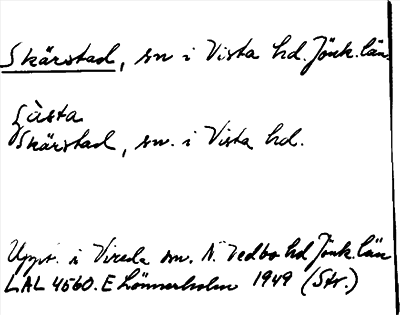 Skärstad, sn i Vista hd. Jönk. län.
Skärstad, sn. i Vista hd.
Uppt. i Vireda sn. N. Vedbo hd Jönk. län
LAL 4560. E Lönnerholm 1949 (Str.)